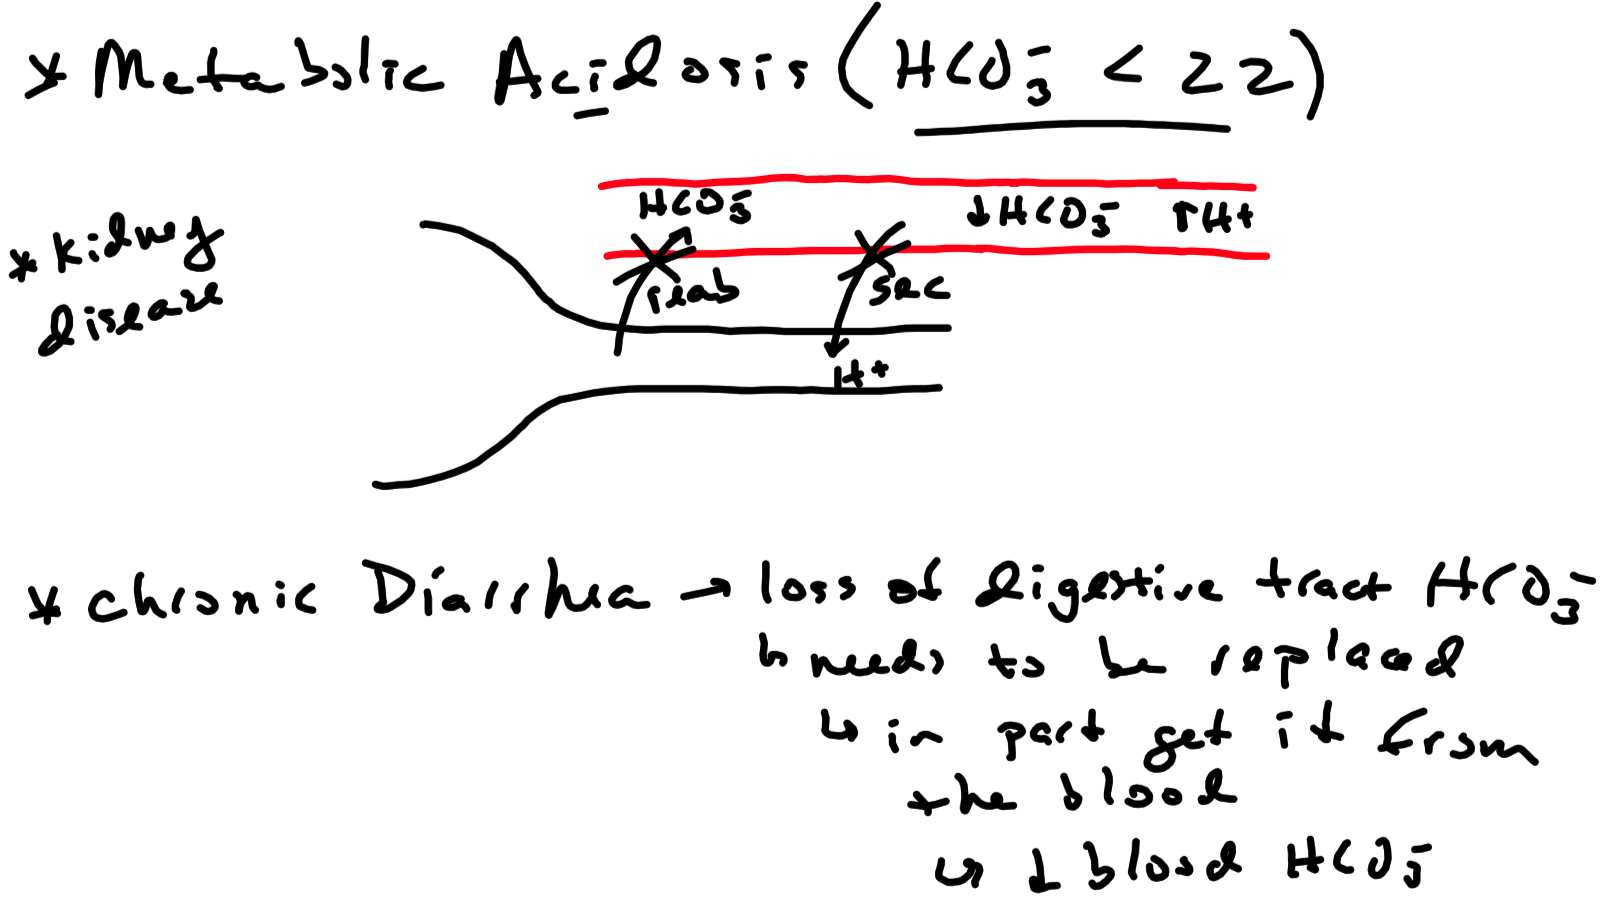 * Metabolic Acidosis (HCO₃⁻ < 22)
HCO₃⁻ ↓HCO₃⁻ ↑H+
* kidney
disease
reab sec
H+
* chronic Diarrhea → loss of digestive tract HCO₃⁻
↳ needs to be replaced
↳ in part get it from
the blood
↳ ↓ blood HCO₃⁻